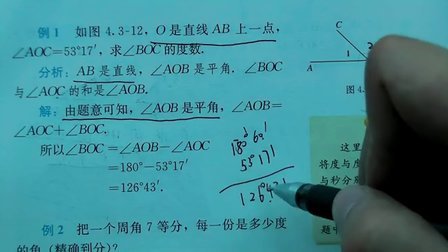 例1 如图4.3-12,O是直线AB上一点,
∠AOC=53°17′,求∠BOC的度数.
分析:AB是直线,∠AOB是平角.∠BOC
与∠AOC的和是∠AOB.
解:由题意可知,∠AOB是平角,∠AOB=
∠AOC+∠BOC.
所以∠BOC=∠AOB-∠AOC
=180°-53°17′
=126°43′.
例2 把一个周角7等分,每一份是多少度
的角(精确到分)?
C
1
A
图4.
这里
将度与度
与秒分别
题中
53°17′